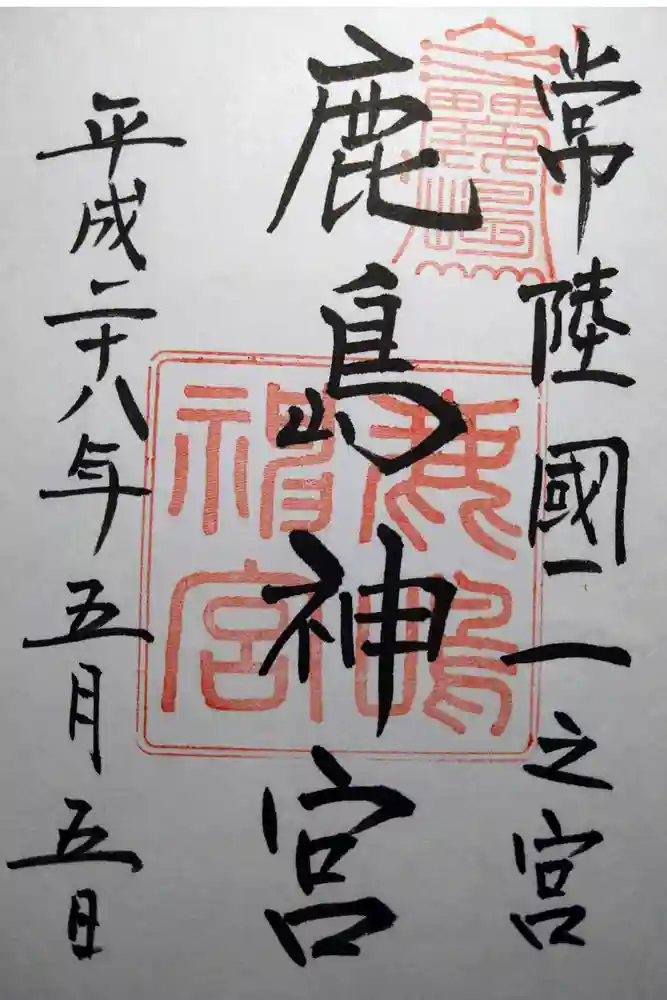 常陸國一之宮
鹿嶋神宮
平成二十八年五月五日
鹿嶋
神宮